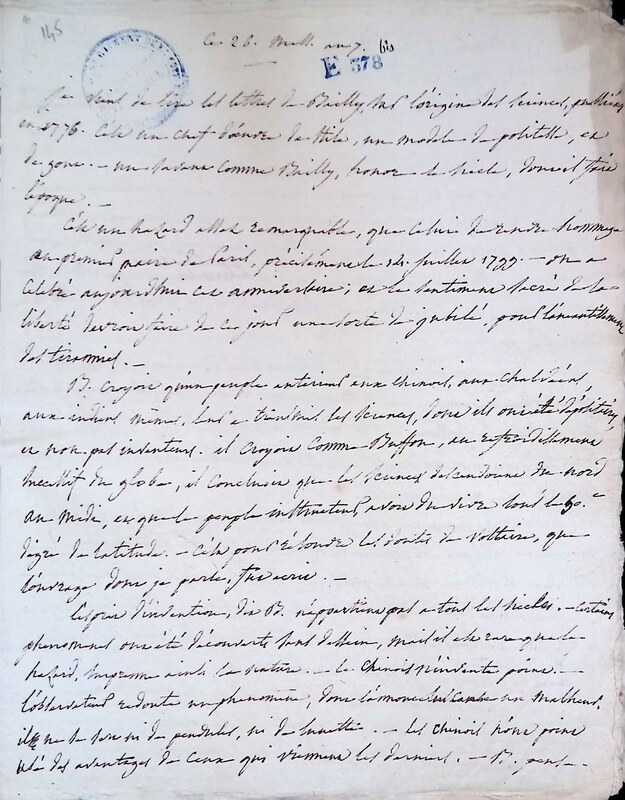 145
ce 26. Mess. an 7. 60
E 378
Je viens de lire les lettres de Bailly, sur l'origine des sciences, publiées
en 1776. C'est un chef d'œuvre de stile, un modele de politesse, et
de gout. — un savant comme Bailly, honore le siecle, dont il fait
l'époque. —
C'est un hazard assez remarquable, que celui de rendre hommage
au premier maire de Paris, précisément le 14 juillet 1799. — on a
celebré aujourdhui cet anniversaire; et le sentiment sacré de la
liberté devroit faire de ce jour une sorte de jubilé, pour l'aneantissement
des tirannies. —
B. croyoit qu'un peuple anterieur aux chinois, aux chaldéens,
aux indiens mêmes, leur a transmis les sciences, dont ils ont été dépositaires,
et non pas inventeurs. il croyoit comme Buffon, au refroidissement
successif du globe, il concluoit que les sciences descendoient du nord
au midi, et que le peuple instituteur, avoit du vivre sous le 50.e
dégré de latitude. — C'est pour résoudre les doutes de Voltaire, que
l'ouvrage dont je parle, fut ecrit. —
L'esprit d'invention, dit B. n'appartient pas a tous les siecles. — Certains
phenomenes ont été découverts sans dessein, mais il est rare que le
hazard, surprenne ainsi la nature. — le chinois n'invente point. —
l'observateur redoute un phenomène, dont l'annonce est un malheur.
il ne se sert ni de pendules, ni de lunettes. — les chinois n'ont point
usé des avantages de ceux qui viennent les derniers. — B. pense